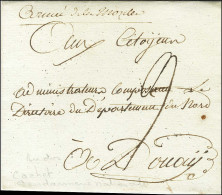 Armée de la Moselle
Aux Citoyens
administrateurs composant le
Directoire du Département du Nord
A Douay